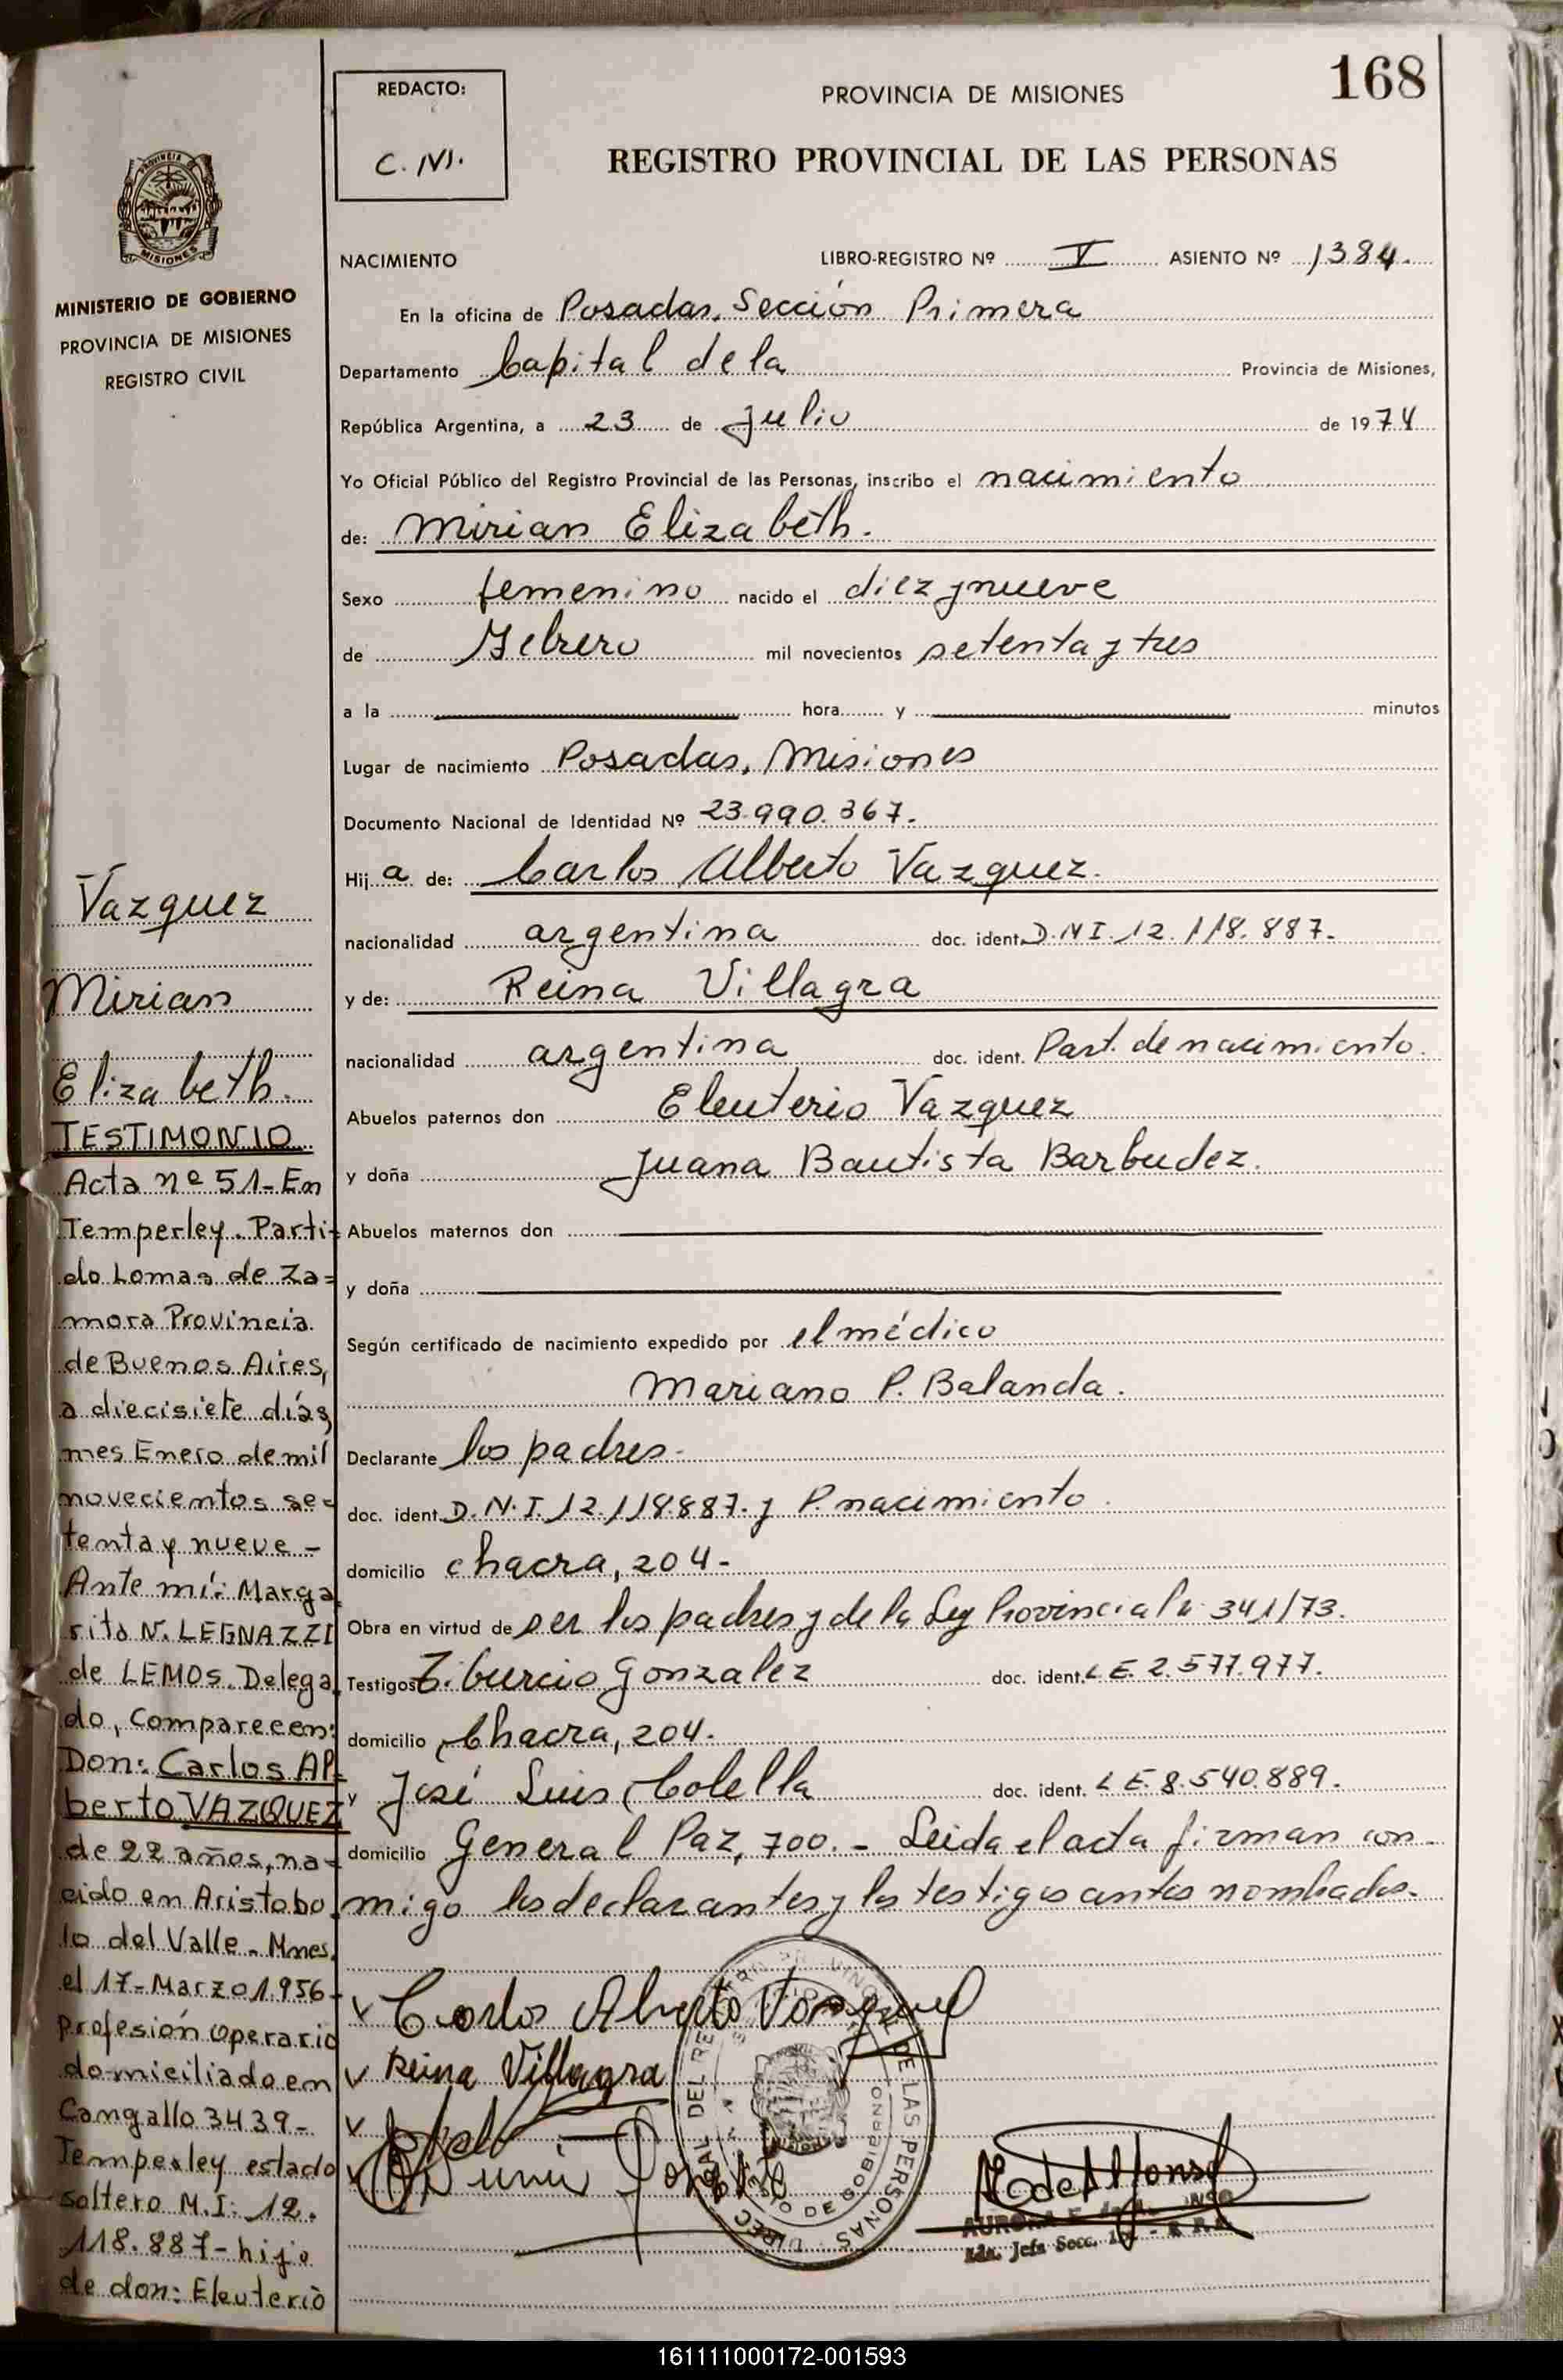 168
REDACTO:
PROVINCIA DE MISIONES
REGISTRO PROVINCIAL DE LAS PERSONAS
PROVINCIA DE
MISIONES
MINISTERIO DE GOBIERNO
PROVINCIA DE MISIONES
REGISTRO CIVIL
NACIMIENTO LIBRO-REGISTRO Nº V ASIENTO Nº 1384.
En la oficina de Posadas, Sección Primera
Departamento Capital de la Provincia de Misiones,
República Argentina, a 23 de Julio de 1974
Yo Oficial Público del Registro Provincial de las Personas, inscribo el nacimiento
de: Mirian Elizabeth.
Sexo femenino nacido el diez y nueve
de Febrero mil novecientos setenta y tres
a la hora y minutos
Lugar de nacimiento Posadas, Misiones
Documento Nacional de Identidad Nº 23.990.367.
Hij a de: Carlos Alberto Vazquez.
nacionalidad argentina doc. ident. D.N.I. 12.118.887.
y de: Reina Villagra
nacionalidad argentina doc. ident. Part. de nacimiento.
Abuelos paternos don Eleuterio Vazquez
y doña Juana Bautista Barbudez.
Abuelos maternos don
y doña
Según certificado de nacimiento expedido por el médico
Mariano P. Balanda.
Declarante los padres.
doc. ident. D.N.I. 12.118.887. y P. nacimiento.
domicilio chacra, 204-
Obra en virtud de ser los padres y de la Ley Provincial n 341/73.
Testigos Tiburcio Gonzalez doc. ident. L E. 2.577.977.
domicilio Chacra, 204.
y José Luis Colella doc. ident. L E. 8.540.889.
domicilio General Paz, 700. - Leida el acta firman con-
migo los declarantes y los testigos antes nombrados.
Carlos Alberto Vazquez
Reina Villagra
Vazquez
Mirian
Elizabeth.
TESTIMONIO
Acta nº 51- En
Temperley. Parti-
do Lomas de Za=
mora Provincia
de Buenos Aires,
a diecisiete días
mes Enero de mil
novecientos se=
tenta y nueve -
Ante mí: Marga
rita N. LEGNAZZI
de LEMOS. Delega
do, Comparecen:
Don: Carlos Al-
berto VAZQUEZ
de 22 años, na=
cido en Aristobo
lo del Valle - Mnes.
el 17-Marzo 1.956-
profesión operario
domiciliado en
Cangallo 3439-
Temperley estado
soltero M.I: 12.
118.887- hijo
de don: Eleuterio
161111000172-001593